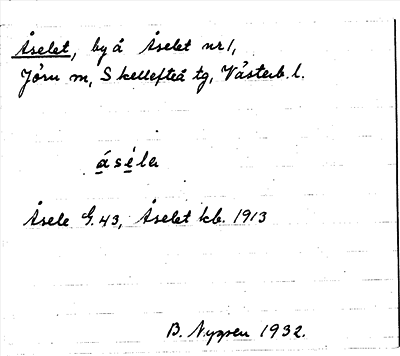 Åselet, by å Åselet nr 1,
Jörn sn, Skellefteå tg, Västerb. l.
åséla
Åsele G. 43, Åselet kb. 1913
B. Nygren 1932.